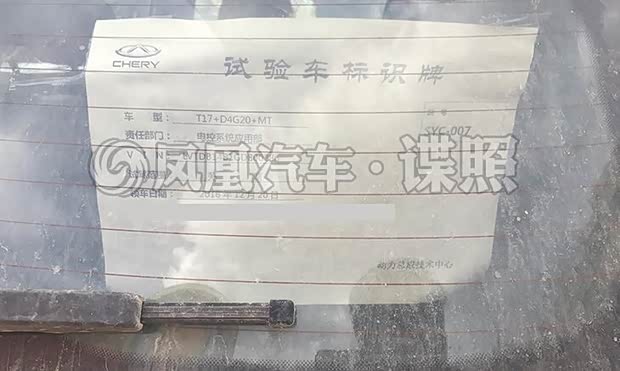 CHERY
试验车标识牌
车 型： T17+D4G20+MT
SYC-007
责任部门： 电控系统应用部
V I N
凤凰汽车·谍照
领车日期： 2016年12月20日
动力总成技术中心